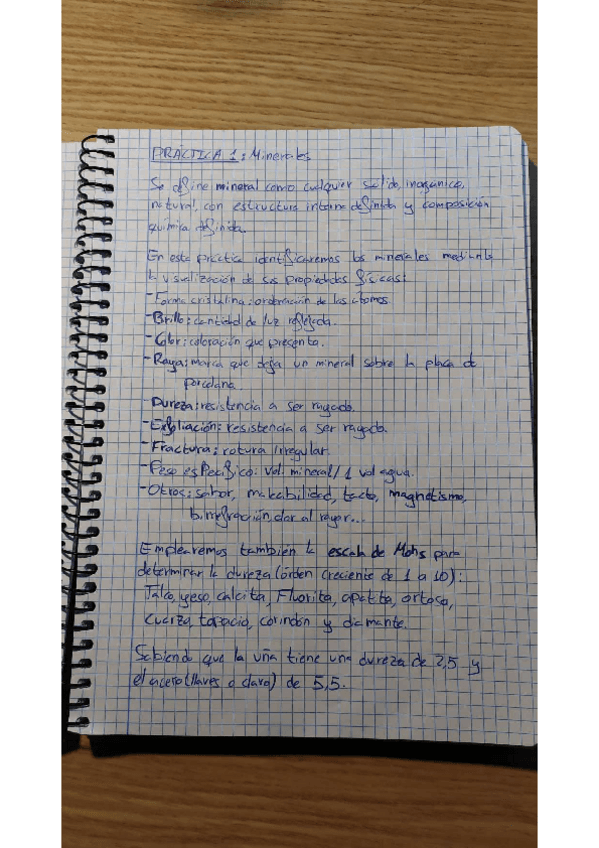 PRÁCTICA 1: Minerales
Se define mineral como cualquier sólido, inorgánico,
natural, con estructura interna definida y composición
química definida.
En esta práctica identificaremos los minerales mediante
la visualización de sus propiedades físicas:
-Forma cristalina: ordenación de los átomos
-Brillo: cantidad de luz reflejada.
-Color: coloración que presenta.
-Raya: marca que deja un mineral sobre la placa de
porcelana.
-Dureza: resistencia a ser rayado.
-Exfoliación: resistencia a ser rayado.
-Fractura: rotura irregular.
-Peso específico: Vol. mineral/1 vol agua.
-Otros: sabor, maleabilidad, tacto, magnetismo,
birrefracción, olor al rayar...
Emplearemos también la escala de Mohs para
determinar la dureza (orden creciente de 1 a 10):
Talco, yeso, calcita, Fluorita, apatito, ortosa,
Cuarzo, topacio, corindón y diamante.
Sabiendo que la uña tiene una dureza de 2,5 y
el acero (llaves o clavo) de 5,5.